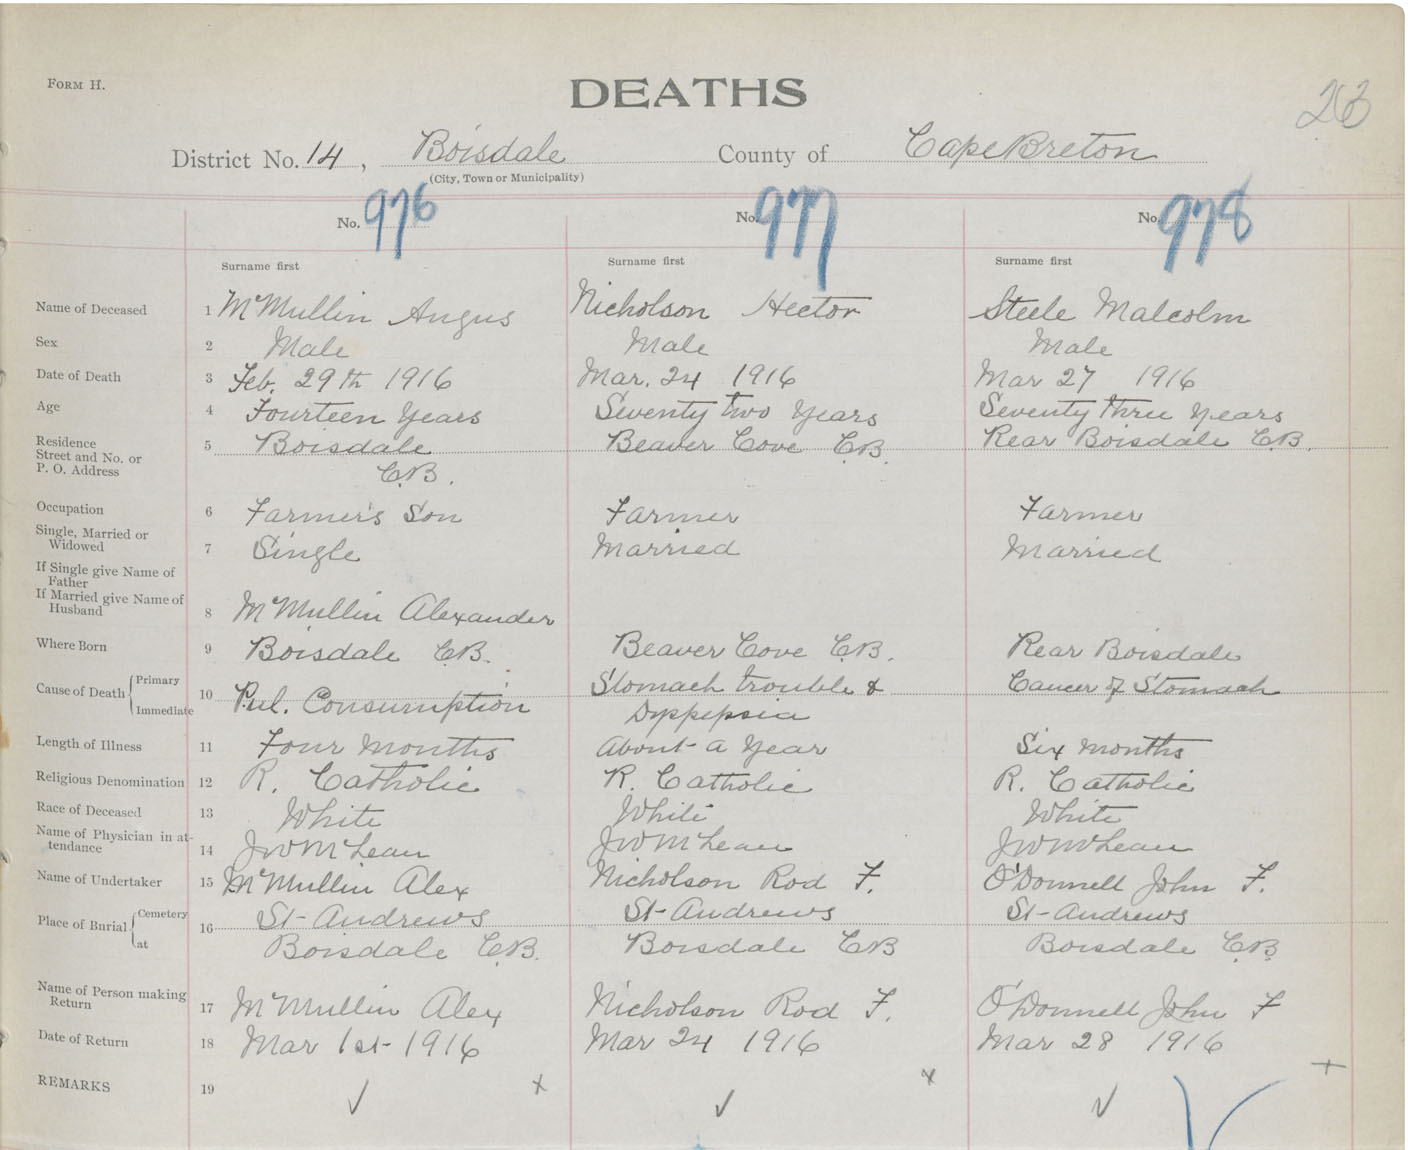 Form H.
DEATHS
263
District No. 14, Boisdale County of Cape Breton
(City, Town or Municipality)
No. 976 No. 977 No. 978
Surname first Surname first Surname first
Name of Deceased 1 McMullin Angus Nicholson Hector Steele Malcolm
Sex 2 Male Male Male
Date of Death 3 Feb. 29th 1916 Mar. 24 1916 Mar 27 1916
Age 4 Fourteen Years Seventy two Years Seventy three Years
Residence
Street and No. or
P. O. Address
5 Boisdale Beaver Cove C.B. Rear Boisdale C.B.
C.B.
Occupation 6 Farmer's Son Farmer Farmer
Single, Married or
Widowed 7 Single Married Married
If Single give Name of
Father
If Married give Name of
Husband 8 McMullin Alexander
Where Born 9 Boisdale C.B. Beaver Cove C.B. Rear Boisdale
Cause of Death { Primary
Immediate
10 Pul. Consumption Stomach trouble & Cancer of Stomach
Dyspepsia
Length of Illness 11 Four months About a Year Six months
Religious Denomination 12 R. Catholic R. Catholic R. Catholic
Race of Deceased 13 White White White
Name of Physician in at-
tendance 14 JW McLean JW McLean JW McLean
Name of Undertaker 15 McMullin Alex Nicholson Rod F. O'Donnell John F.
Place of Burial { Cemetery
at
16 St-Andrews St-Andrews St-Andrews
Boisdale C.B. Boisdale CB Boisdale C.B.
Name of Person making
Return 17 McMullin Alex Nicholson Rod F. O'Donnell John F
Date of Return 18 Mar 1st-1916 Mar 24 1916 Mar 28 1916
REMARKS 19